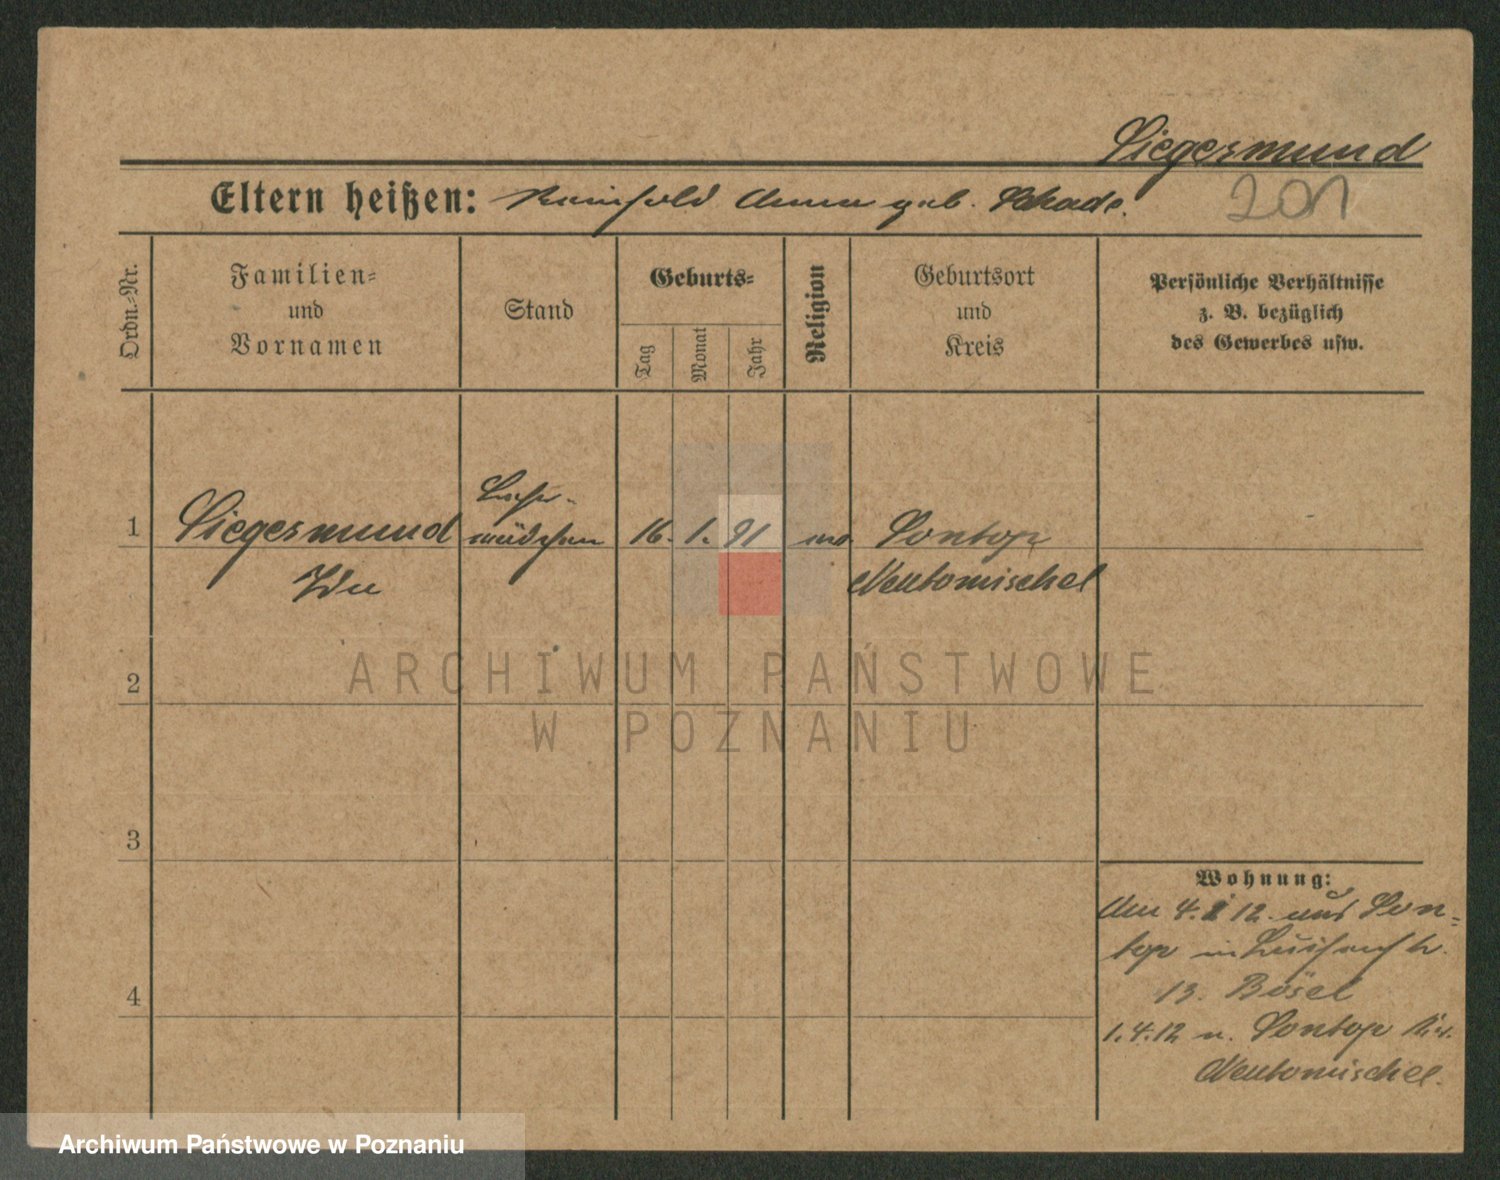 Siegesmund
Eltern heißen: Reinhold Anna geb. Schade.
201
Ordn.-Nr.
Familien-
und
Vornamen
Stand
Geburts-
Tag
Monat
Jahr
Religion
Geburtsort
und
Kreis
Persönliche Verhältnisse
z. B. bezüglich
des Gewerbes usw.
1
Siegesmund
Ida
mädchen
16. 1. 91
Sontop
Neutomischel
2
ARCHIWUM PAŃSTWOWE
W POZNANIU
3
4
Wohnung:
Am 4. 12. aus Son-
top in Luisenstr.
13. Bösel
1.4.12 n. Sontop Kr.
Neutomischel.
Archiwum Państwowe w Poznaniu